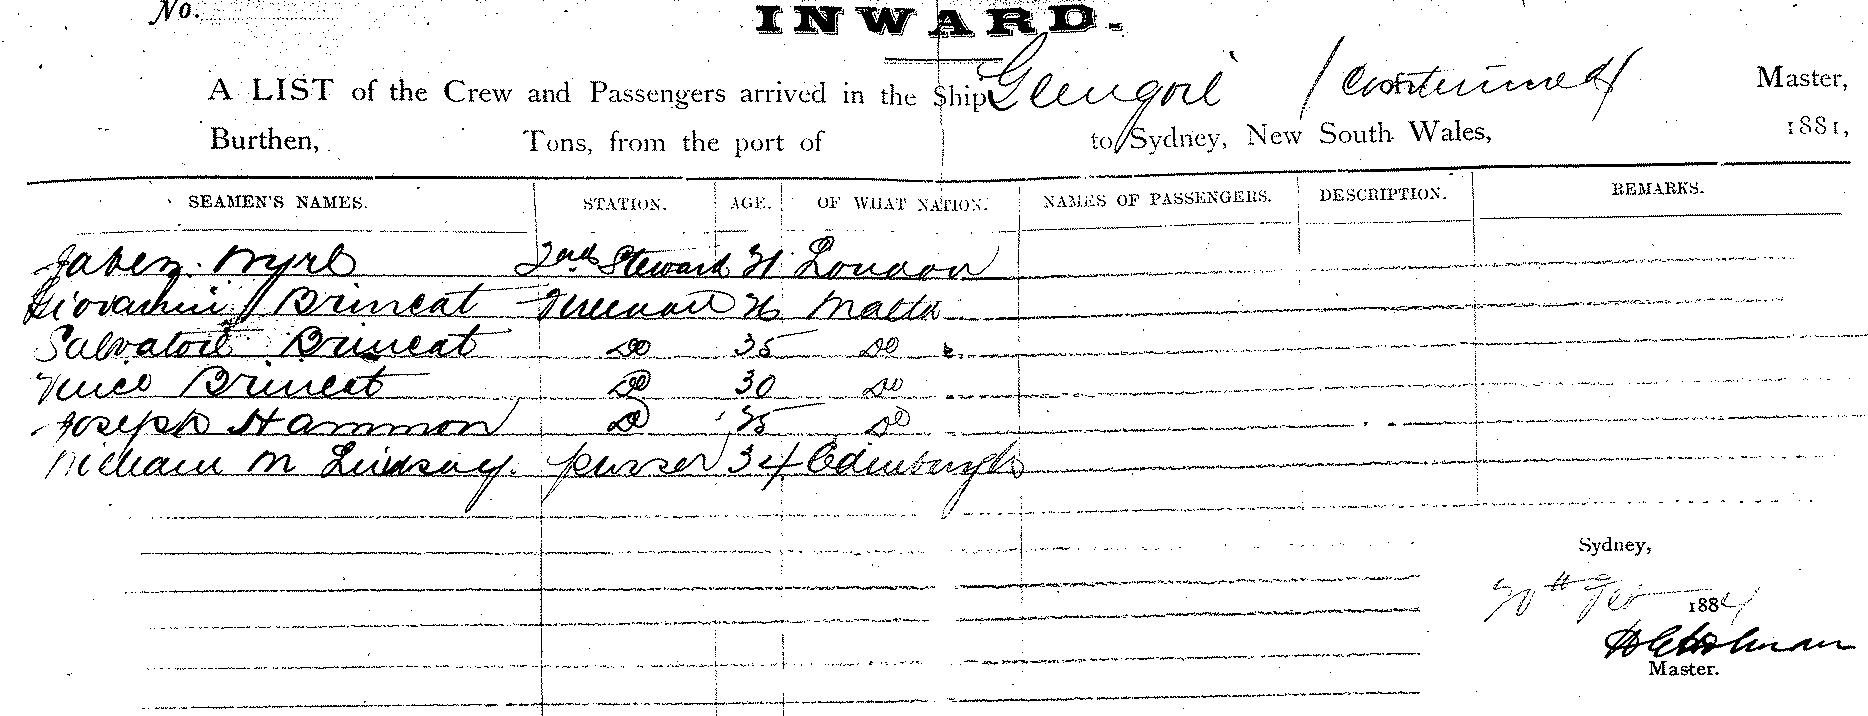 No.
INWARD.
A LIST of the Crew and Passengers arrived in the Ship Glengoil (Continued) Master,
Burthen, Tons, from the port of to Sydney, New South Wales, 1881,
SEAMEN'S NAMES. STATION. AGE. OF WHAT NATION. NAMES OF PASSENGERS. DESCRIPTION. REMARKS.
Jabez 2nd Steward London
Giovanni Brincat Fireman Malta
Salvatore Brincat Do 35 Do
Brincat Do 30 Do
Joseph Hammon Do 25 Do
William M Lindsay. purser 34 Edinburgh
Sydney,
20th Feb 1884
Master.